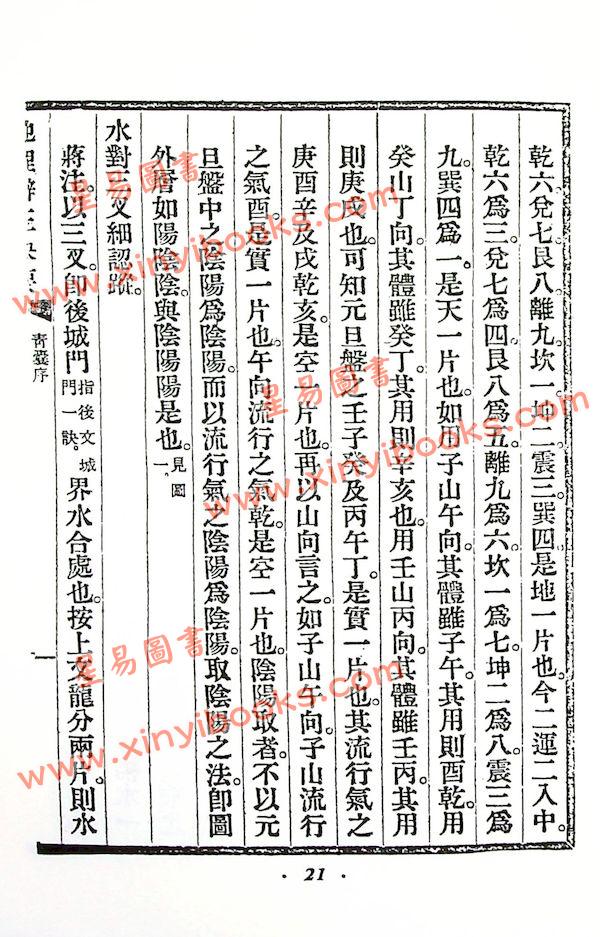 乾六。兌七。艮八。離九。坎一。地二。震三。巽四。是地一片也。今二運二入中。
乾六爲三。兌七爲四。艮八爲五。離九爲六。坎一爲七。坤二爲八。震三爲
九。巽四爲一。是天一片也。如用子山午向。其體雖子午。其用則酉乾。用
癸山丁向。其體雖癸丁。其用則辛亥也。用壬山丙向。其體雖壬丙。其用
則庚戌也。可知元旦盤之壬子癸及丙午丁。是實一片也。其流行氣之
庚酉辛及戌乾亥。是空一片也。再以山向言之。如子山午向。子山流行
之氣酉。是實一片也。午向流行之氣乾。是空一片也。陰陽取者。不以元
旦盤中之陰陽爲陰陽。而以流行氣之陰陽爲陰陽。取陰陽之法。卽圖
外層如陽陰陰與陰陽陽是也。見圖一。
水對三叉細認蹤。
蔣法。以三叉。卽後城門。指後文城門一訣。界水合處也。按上文龍分兩片。則水
地理辨正
青囊序
一
· 21 ·
星易圖書
www.xinyibooks.com
星易圖書
www.xinyibooks.com
星易圖書
www.xinyibooks.com
星易圖書
www.xinyibooks.com